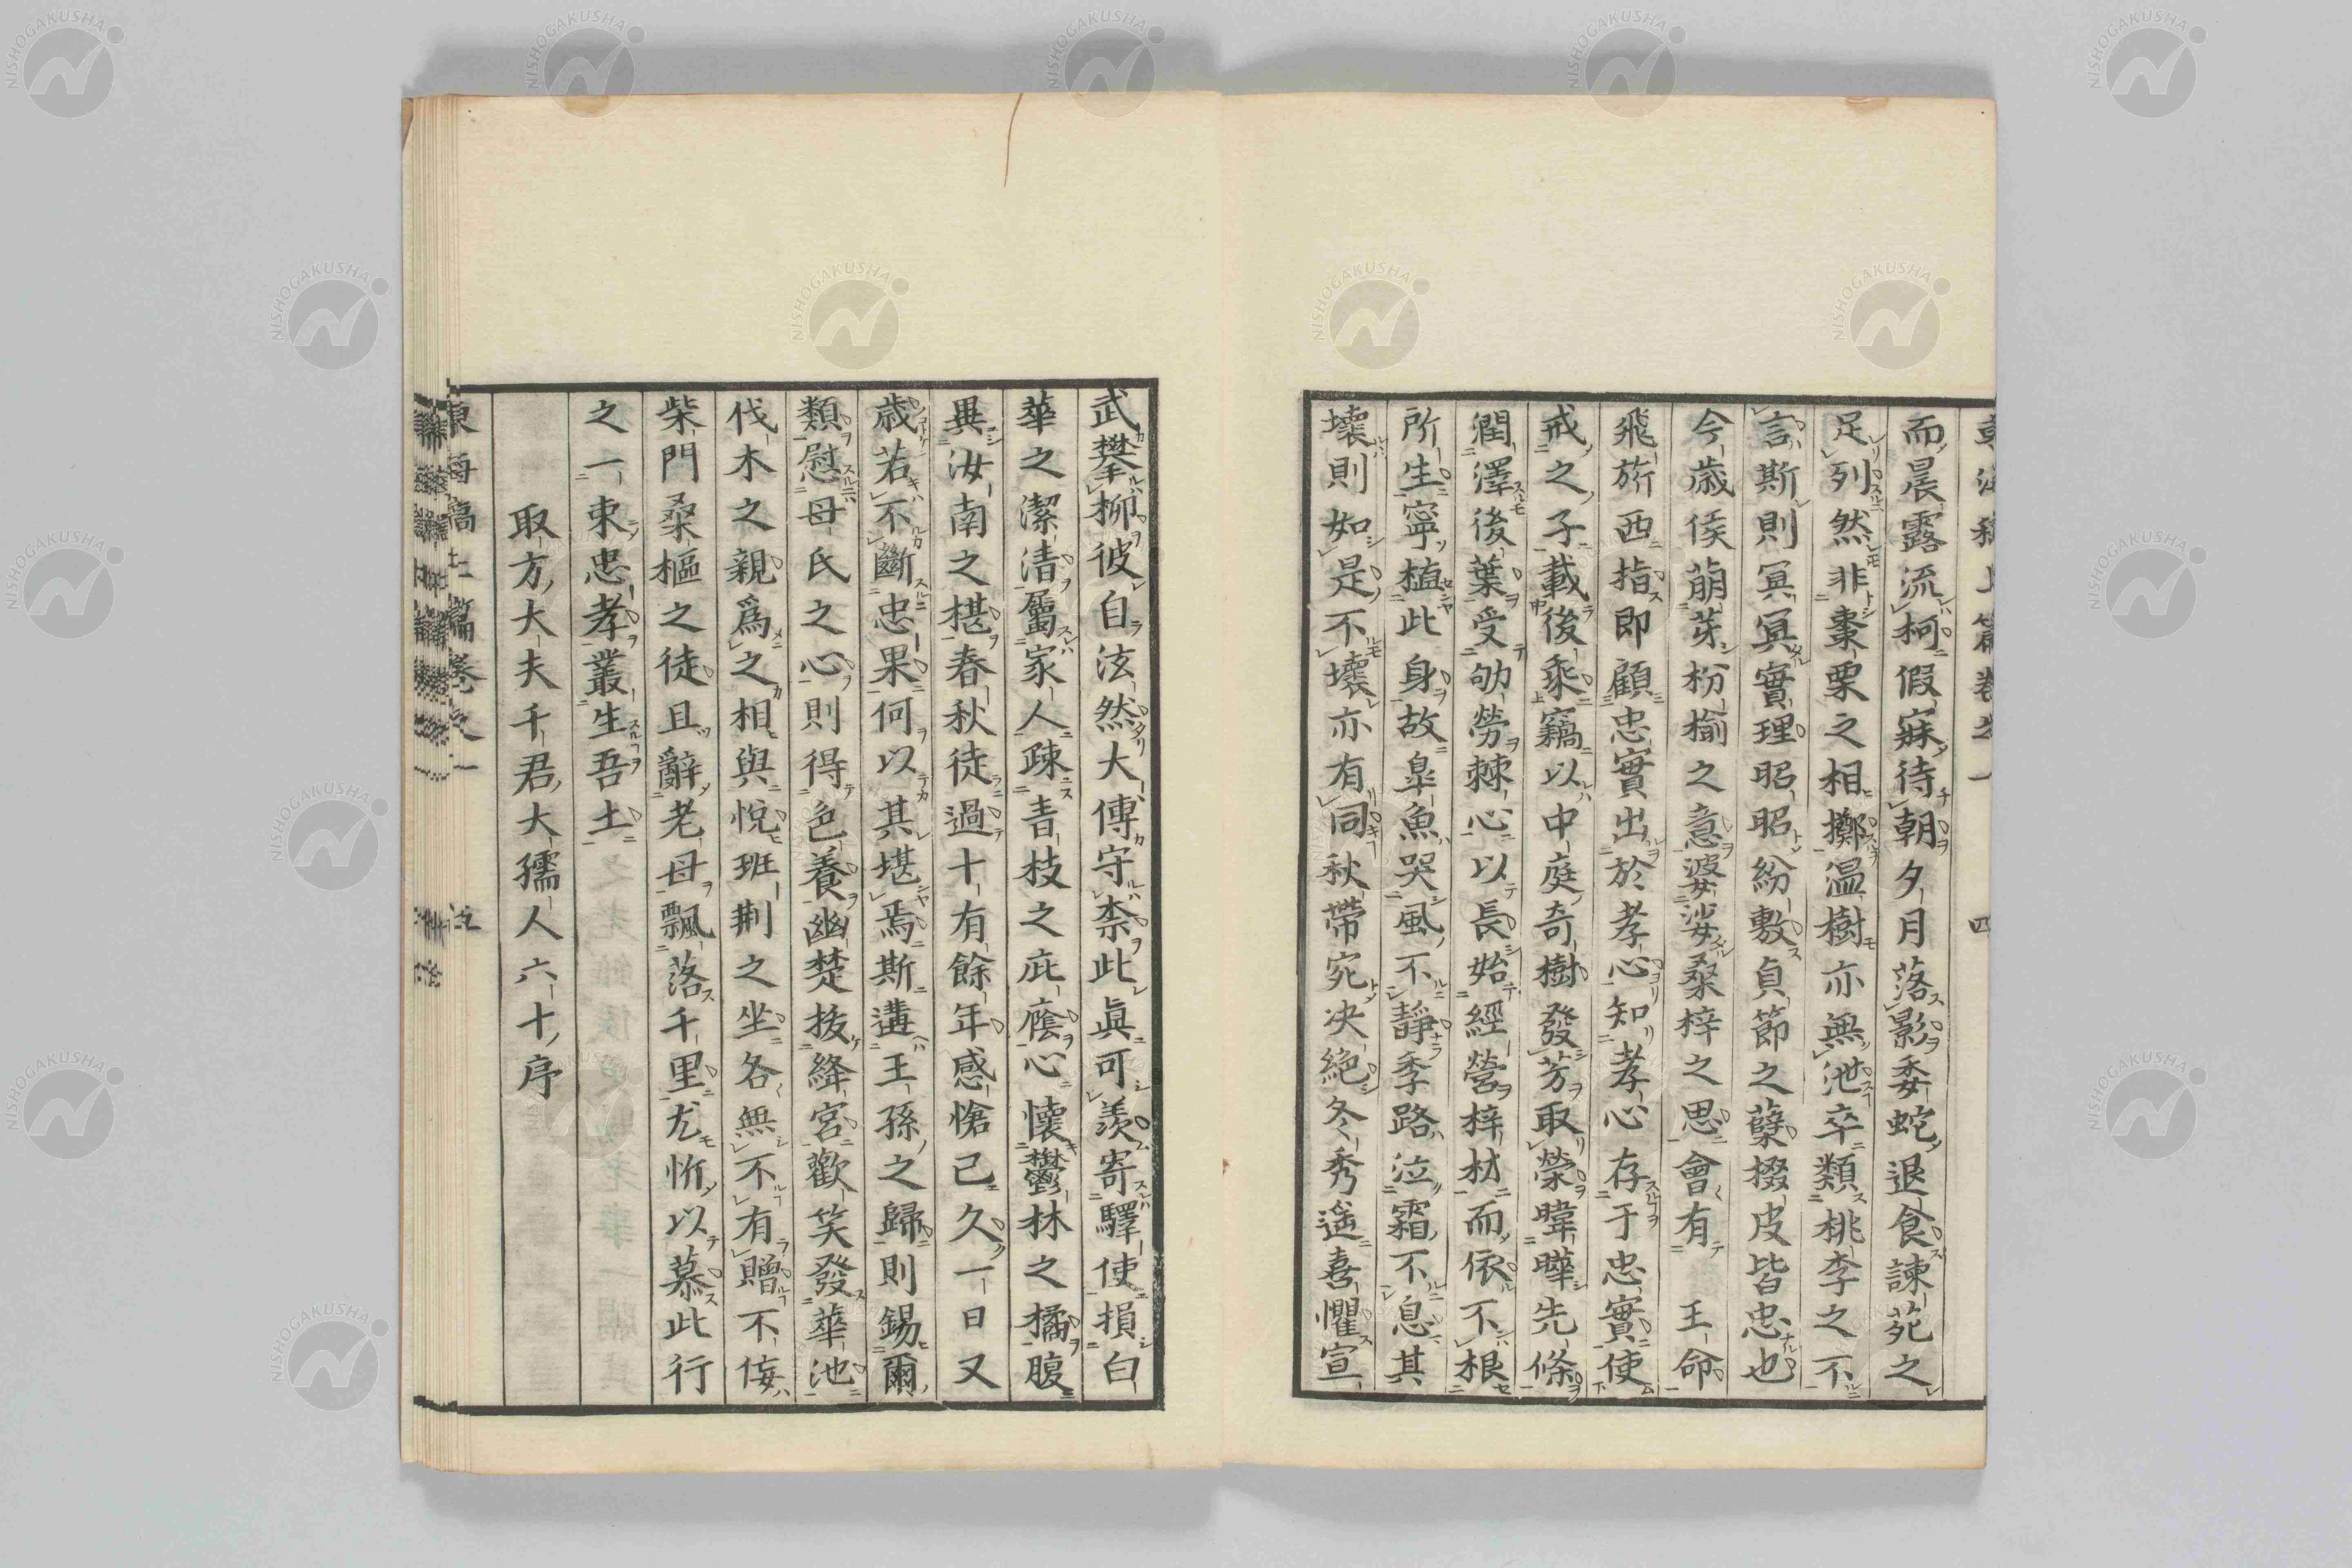 東海稿上篇卷之一 四
而晨露流柯假寐待朝夕月落影委蛇退食諫苑之
足列然非棗栗之相擲温樹亦無池卒類桃李之不
言斯則冥冥實理昭昭紛敷貞節之蘖掇皮皆忠也
今歲俟萠芽枌楡之意婆娑桑梓之思會有 王命
飛旂西指即顧忠實出於孝心知孝心存于忠實使
戒之子載後乘竊以中庭奇樹發芳取榮暐曄先條
潤澤後葉受劬勞棘心以長始經營梓材而依不根
所生寧植此身故皐魚哭風不靜季路泣霜不息其
壞則如是不壞亦有同秋帶宛决絕冬秀遥喜懼宣
武攀柳彼自泫然大傅守柰此眞可羨寄驛使損白
華之潔清屬家人疎青枝之庇廕心懷鬱林之橘腹
異汝南之椹春秋徒過十有餘年感愴已久一日又
歲若不斷忠果何以其堪焉斯遘王孫之歸則錫爾
類慰母氏之心則得色養幽楚抜絳宮歡笑發華池
伐木之親爲之相與悅班荆之坐各無不有贈不侫
柴門桑樞之徒且辭老母飄落千里尤忻以慕此行
之一束忠孝叢生吾土
取方大夫千君大孺人六十序
東海稿上篇卷之一